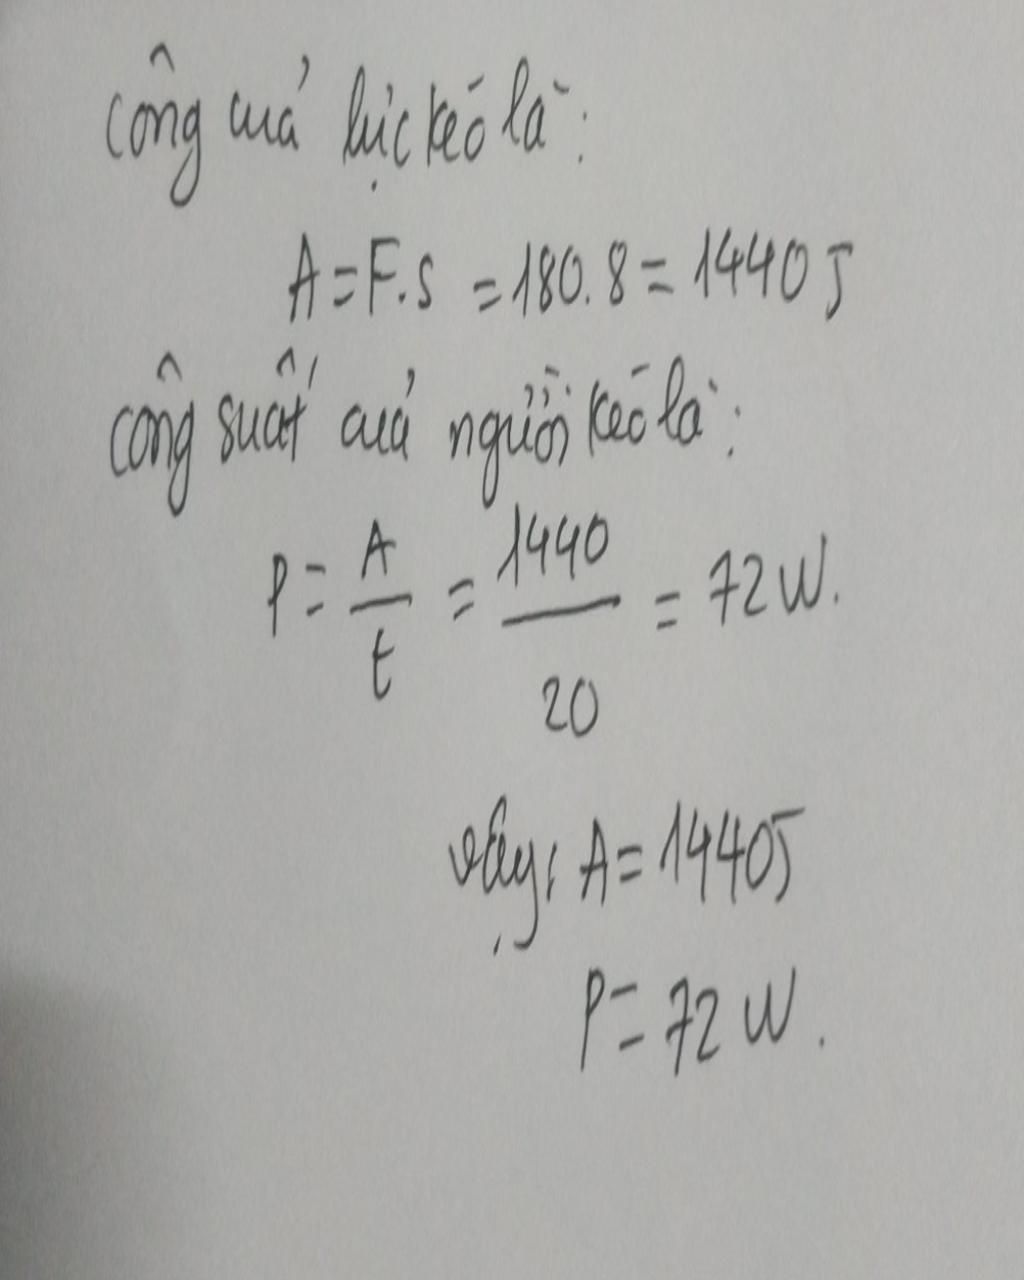 Công của lực kéo là:
A = F.s = 180.8 = 1440 J
Công suất của người kéo là:
P = A/t = 1440/20 = 72 W.
Vậy: A = 1440J
P = 72 W.